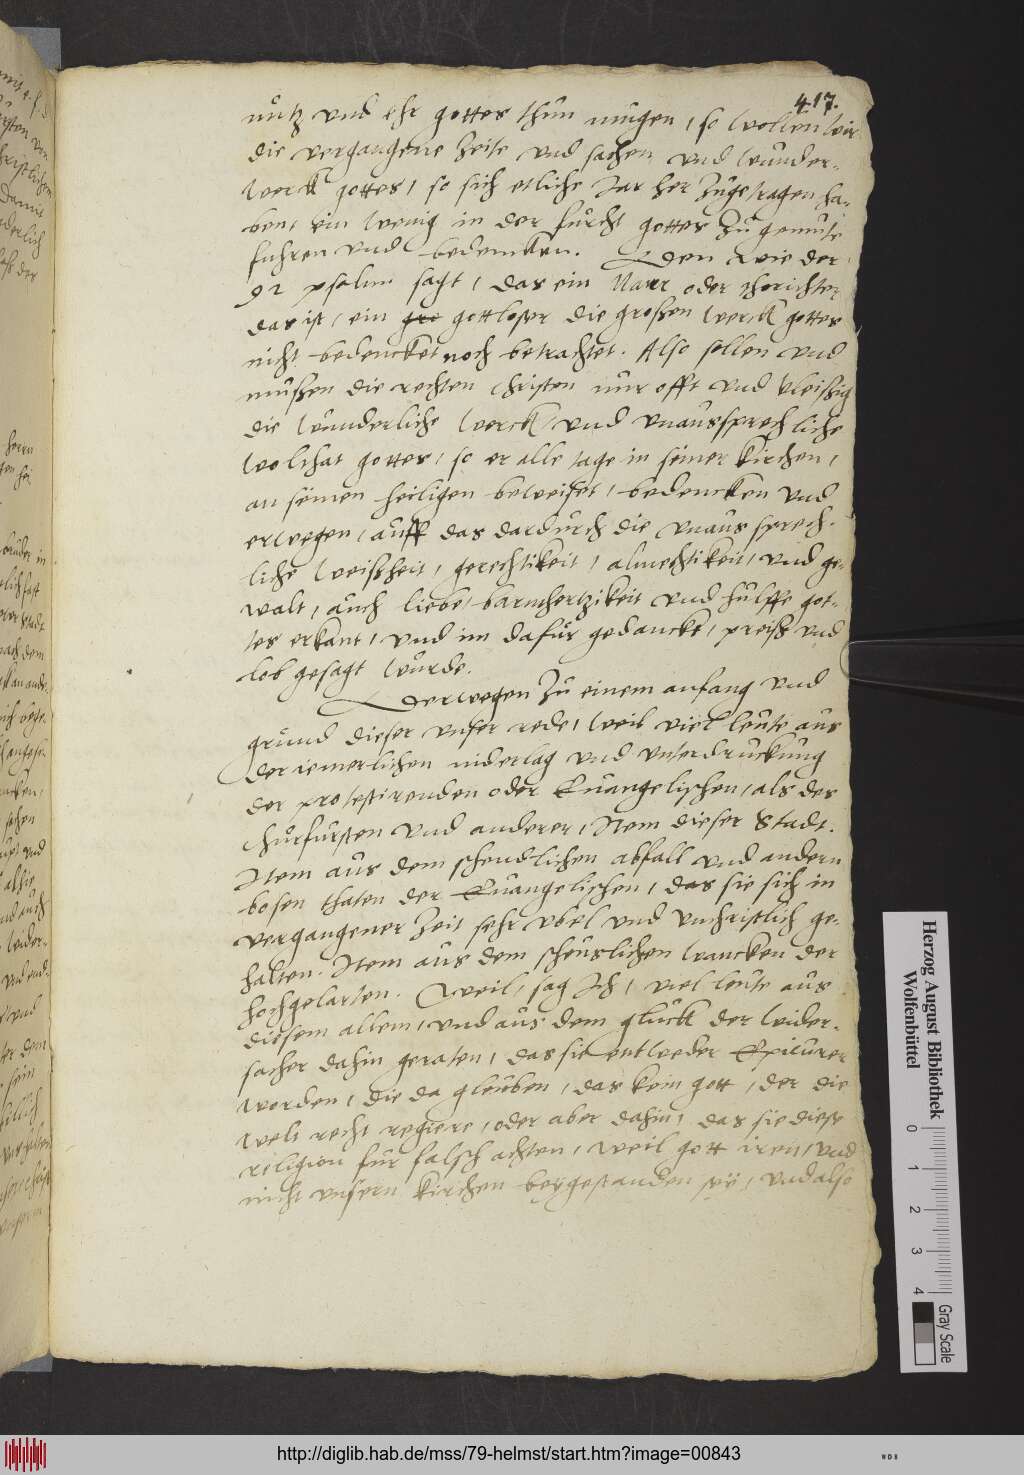 417.
nutz vnd ehr gottes thun mugen, so wollen wir
die vergangene Zeite vnd sachen vnd wunder-
werck gottes, so sich etliche Jar her zugetragen ha-
ben, ein wenig in der furcht gottes zu gemute
fuhren vnd bedencken. Den wie der
92 psalm sagt, das ein Narr oder thorichter
das ist, ein gottloser die großen werck gottes
nicht bedencket noch betrachtet. Also sollen vnd
mußen die rechten Christen nur offt vnd vleißig
die wunderliche werck, vnd vnaussprechliche
wolthat gottes, so er alle tage in seiner kirchen,
an seinen heiligen beweiset, bedencken vnd
erwegen, auff das dardurch die vnaussprech-
liche weißheit, gerechtikeit, almechtikeit, vnd ge-
walt, auch liebe, barmhertzikeit vnd hulffe got-
tes erkant, vnd im dafur gedanckt, preiß vnd
lob gesagt wurde.
Derwegen zu einem anfang vnd
grund dieser vnser rede, weil viel leute aus
der iemerlichen niderlag vnd vnterdruckung
der protestirenden oder Euangelischen, als des
Churfursten vnd anderer, Item dieser Stadt.
Item aus dem schendlichen abfall vnd andern
bosen thaten der Euangelischen, das sie sich in
vergangener Zeit sehr vbel vnd vnchristlich ge-
halten. Item aus dem scheuslichen wancken der
hochgelarten. Weil, sag Ich, viel leute aus
diesem allem, vnd aus dem gluck der wider-
sacher dahin geraten, das sie entweder Epicurer
worden, die da gleuben, das kein gott, der die
welt recht regiere, oder aber dahin, das sie diese
religion fur falsch achten, weil gott iren, vnd
nicht vnsern kirchen beygestanden sey, vnd also
Herzog August Bibliothek
Wolfenbüttel
0 1 2 3 4
Gray Scale
http://diglib.hab.de/mss/79-helmst/start.htm?image=00843